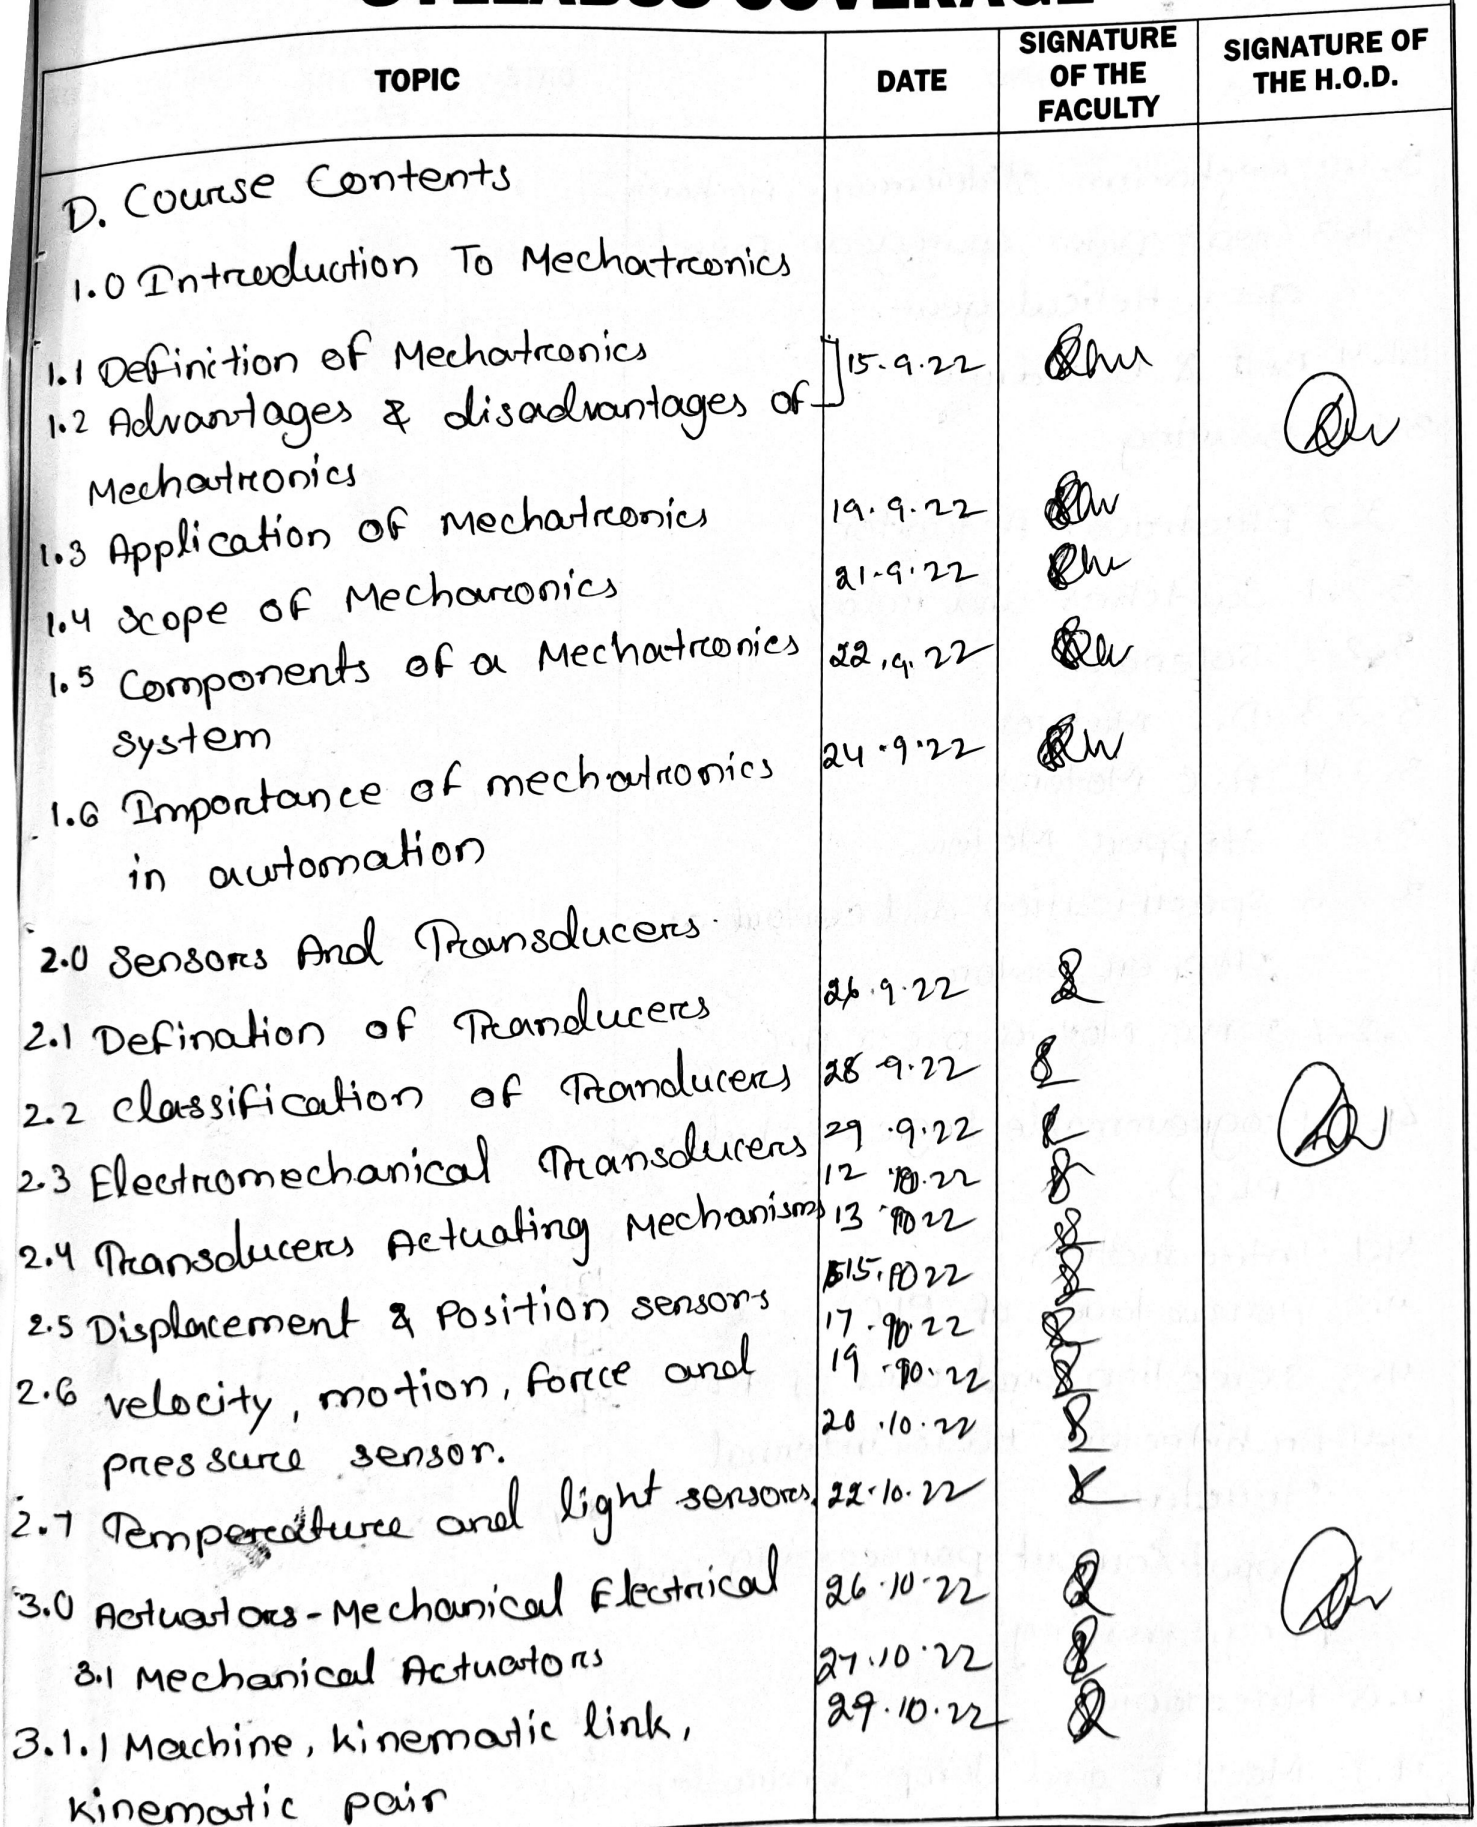 SYLLABUS COVERAGE
TOPIC DATE SIGNATURE OF THE FACULTY SIGNATURE OF THE H.O.D.
D. Course Contents
1.0 Introduction To Mechatronics
1.1 Definition of Mechatronics 15.9.22
1.2 Advantages & disadvantages of
Mechatronics
1.3 Application of Mechatronics 19.9.22
1.4 Scope of Mecharonics 21.9.22
1.5 Components of a Mechatronics 22.9.22
system
1.6 Importance of mechatronics 24.9.22
in automation
2.0 Sensors And Transducers
26.9.22
2.1 Defination of Tranducers
2.2 Classification of Tranducers 28.9.22
2.3 Electromechanical Transducers 29.9.22
12.10.22
2.4 Transducers Actuating Mechanisms 13.10.22
15.10.22
2.5 Displacement & Position sensors 17.10.22
2.6 velocity, motion, force and 19.10.22
pressure sensor. 20.10.22
2.7 Temperature and light sensors. 22.10.22
3.0 Actuators-Mechanical Electrical 26.10.22
3.1 Mechanical Actuators 27.10.22
3.1.1 Machine, kinematic link, 29.10.22
kinematic pair